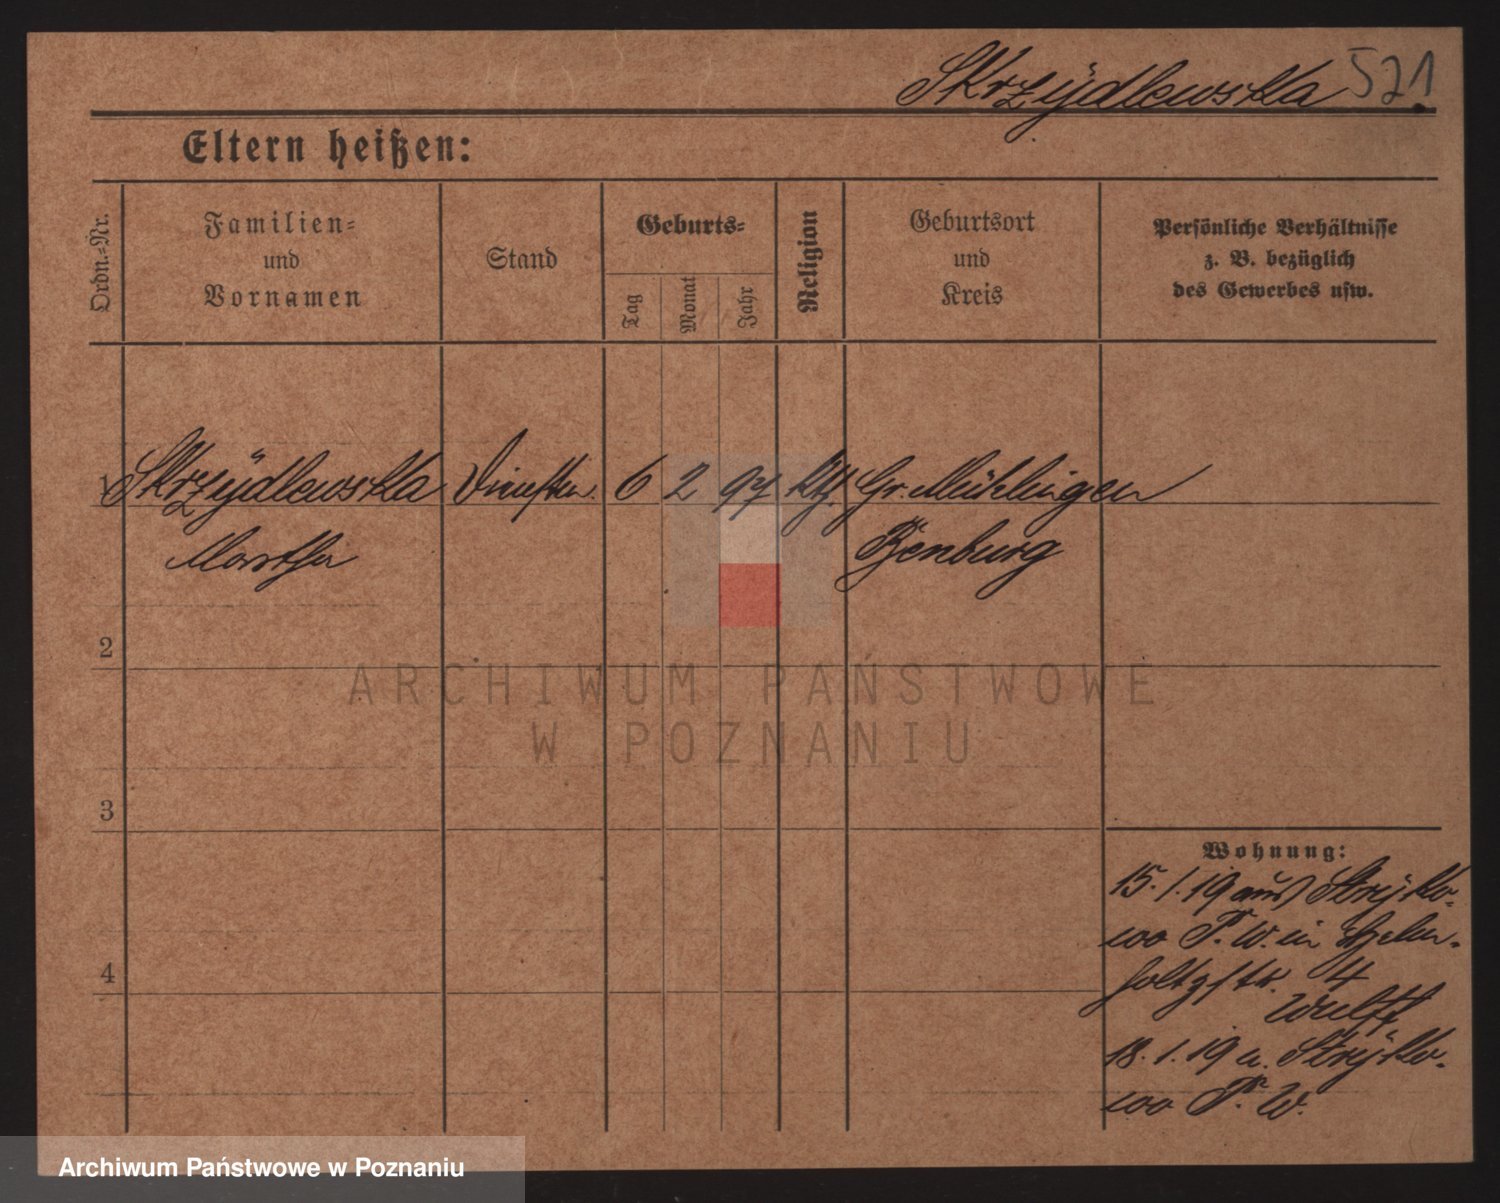 Skrzÿdlewska 521
Eltern heißen:
Ordn.-Nr.
Familien-
und
Vornamen
Stand
Geburts-
Tag
Monat
Jahr
Religion
Geburtsort
und
Kreis
Persönliche Verhältnisse
z. B. bezüglich
des Gewerbes usw.
1 Skrzÿdlewska 6 2 97 kth. Gr. Mühlingen
Martha
2
3
4
Wohnung:
15.1.19 aus Strÿko-
wo P. W. in
4
Wulff
18.1.19 n. Strÿko-
wo P. W.
ARCHIWUM PAŃSTWOWE
W POZNANIU
Archiwum Państwowe w Poznaniu